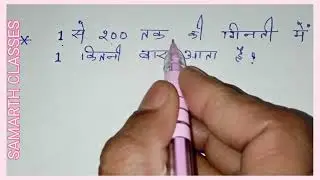 SAMARTH CLASSES
* 1 से 200 तक की गिनती में
1 कितनी बार आता है?